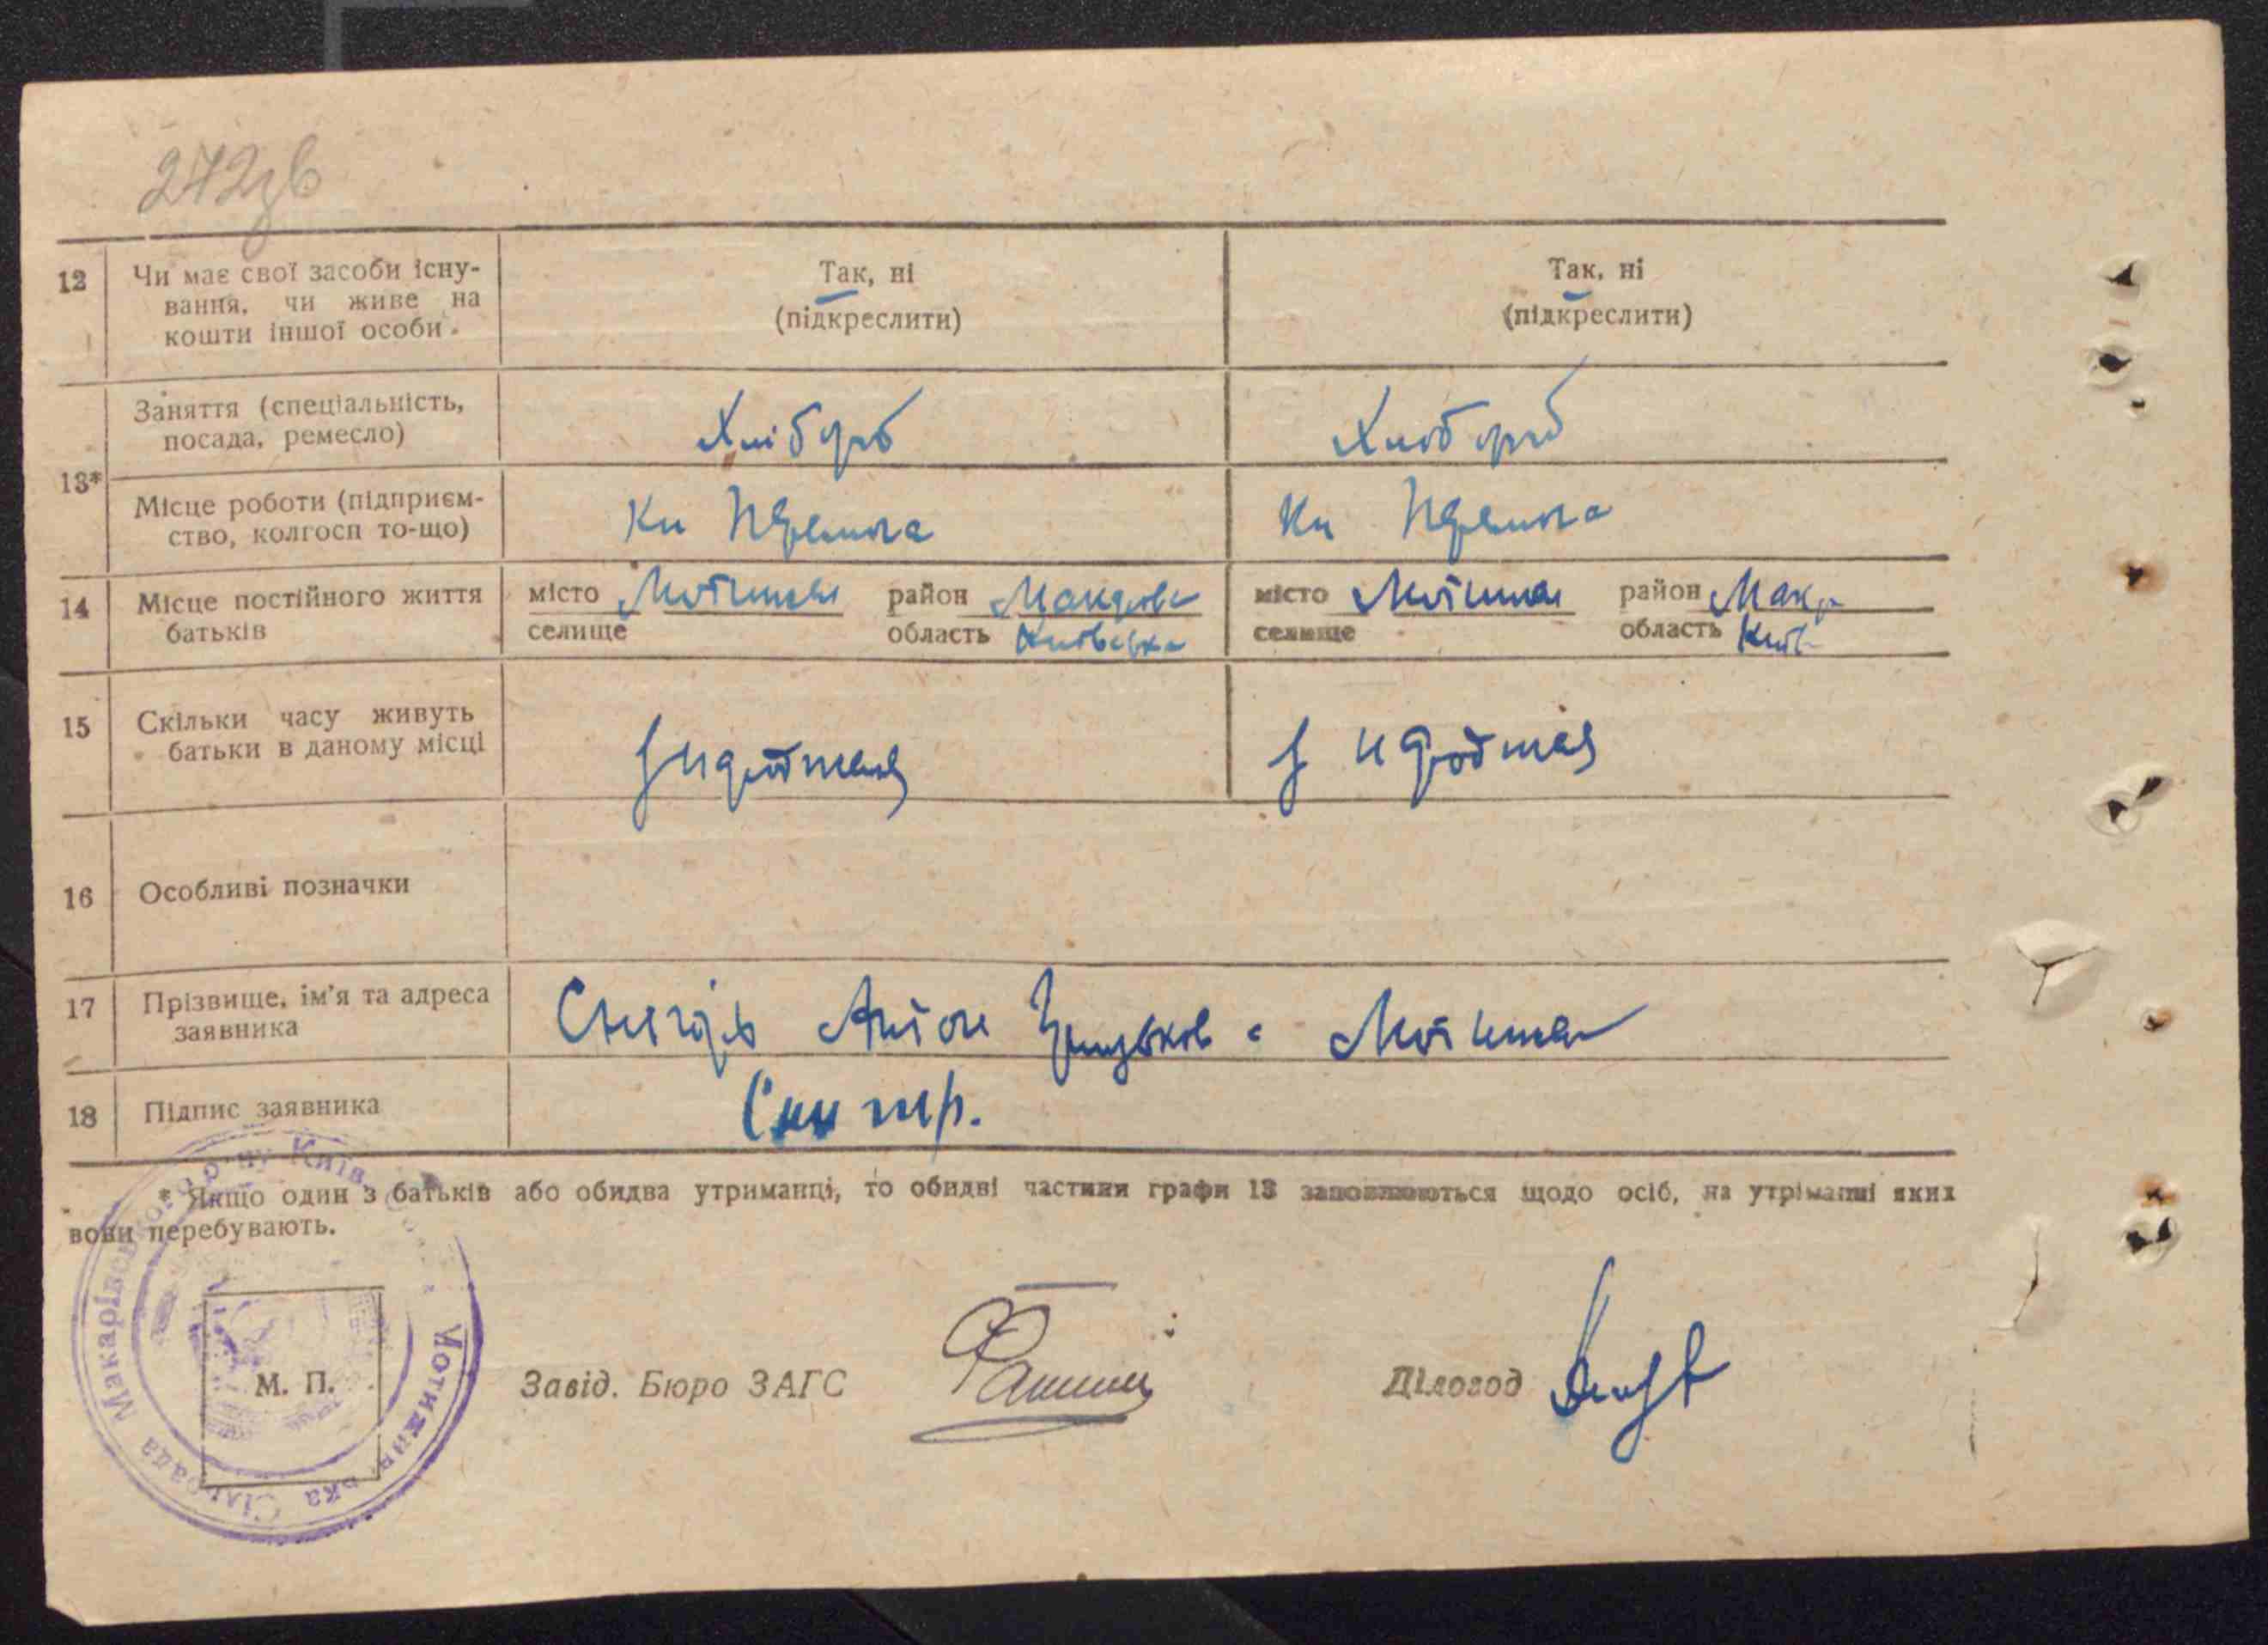 272зв
12 Чи має свої засоби існу-
вання, чи живе на
кошти іншої особи.
Так, ні
(підкреслити)
Так, ні
(підкреслити)
13*
Заняття (спеціальність,
посада, ремесло)
Хлібороб
Хлібороб
Місце роботи (підприєм-
ство, колгосп то-що)
Кп Перемога
Кп Перемога
14 Місце постійного життя
батьків
місто Мотижин район Макарівс
селище область Київська
місто Мотижин район Макар
селище область Київ
15 Скільки часу живуть
батьки в даному місці
з народження
з народження
16 Особливі позначки
17 Прізвище, ім'я та адреса
заявника
Снігирь Антон с Мотижин
18 Підпис заявника
* Якщо один з батьків або обидва утриманці, то обидві частини графи 13 заповнюються щодо осіб, на утріманні яких
вони перебувають.
М. П.
Завід. Бюро ЗАГС
Діловод
Мотижинська Сільрада Макарівського р-ну Київ.